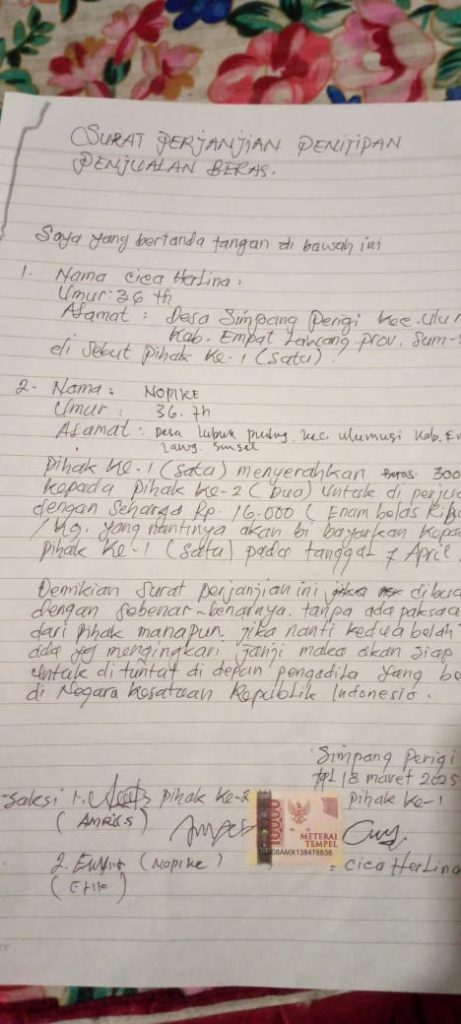 SURAT PERJANJIAN PENITIPAN
PENJUALAN BERAS.
Saya yang bertanda tangan di bawah ini
1. Nama Cica Herlina :
Umur : 36 th
Alamat : Desa Simpang Perigi Kec. Ulu
Kab. Empat Lawang prov. Sum-
di sebut pihak ke-1 (satu).
2- Nama : NOPIKE
Umur : 36. th
Alamat : Desa lubuk puding kec. ulumusi kab. E
lawg. sumsel
pihak ke-1 (satu) menyerahkan Beras 300
kepada pihak ke-2 (Dua) untuk di perju
dengan seharga Rp. 16.000 (Enam belas Rib
/kg. yang nantinya akan bi bayarkan kepa
pihak ke-1 (satu) pada tanggal 7 April.
Demikian surat perjanjian ini dibua
dengan sebenar-benarnya. tanpa ada paksaa
dari pihak manapun. jika nanti kedua belah
ada yg mengingkari janji maka akan siap
untuk di tuntut di depan pengadila yang be
di Negara kesatuan Republik Indonesia.
Simpang Perigi
tgl 18 maret 2025
-saksi 1. pihak ke-2 pihak ke-1
10000
METERAI
TEMPEL
AMX138476836
2. (Nopike) cica Herlina